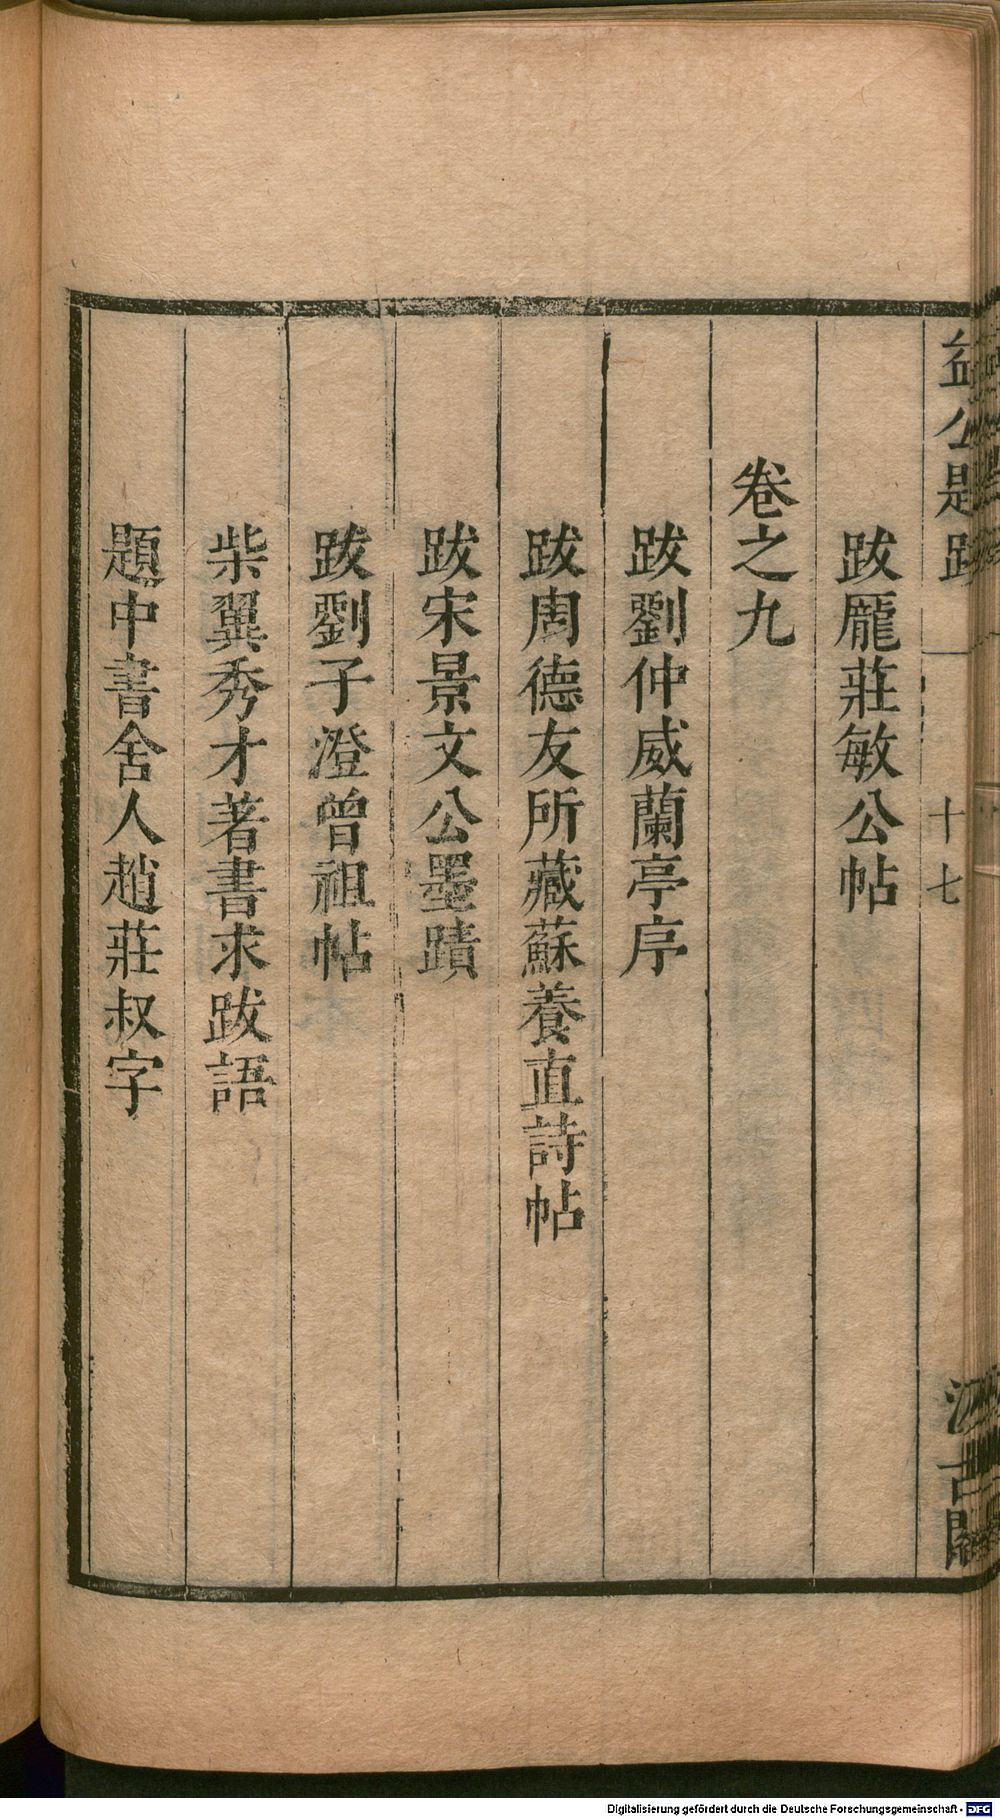 益公題跋
十七
汲古閣
跋龎莊敏公帖
卷之九
跋劉仲威蘭亭序
跋周德友所藏蘇養直詩帖
跋宋景文公墨蹟
跋劉子澄曾祖帖
柴翼秀才著書求跋語
題中書舍人趙莊叔字
Digitalisierung gefördert durch die Deutsche Forschungsgemeinschaft - DFG